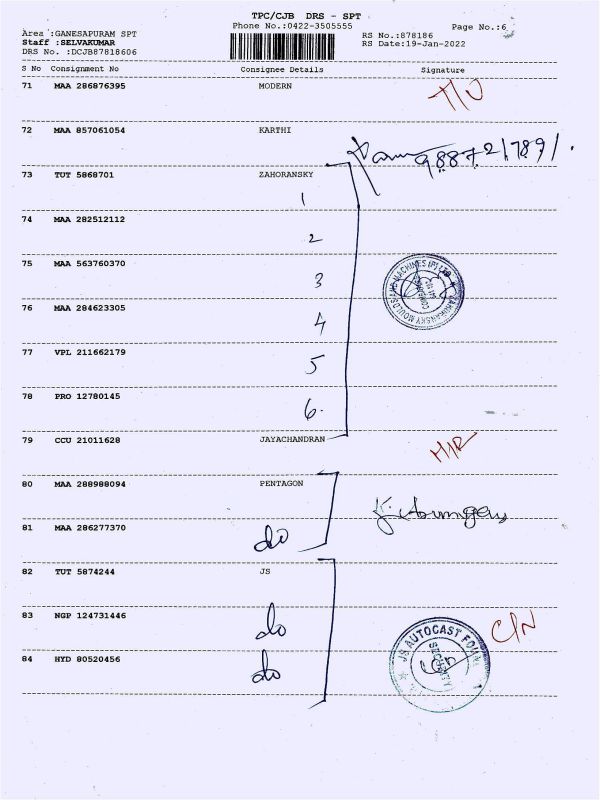 TPC/CJB DRS - SPT
Phone No.:0422-3505555
Page No.:6
Area :GANESAPURAM SPT
RS No.:878186
Staff :SELVAKUMAR
RS Date:19-Jan-2022
DRS No. :DCJB87818606
S No Consignment No Consignee Details Signature
71 MAA 286876395 MODERN
72 MAA 857061054 KARTHI
9887217891
73 TUT 5868701 ZAHORANSKY
1
74 MAA 282512112
2
75 MAA 563760370
3
ZAHORANSKY MOULDS AND MACHINES (P) LTD
76 MAA 284623305
4
77 VPL 211662179
5
78 PRO 12780145
6.
79 CCU 21011628 JAYACHANDRAN
80 MAA 288988094 PENTAGON
81 MAA 286277370 do
82 TUT 5874244 JS
83 NGP 124731446 do
C/N
84 HYD 80520456 do
JS AUTOCAST
SECURITY